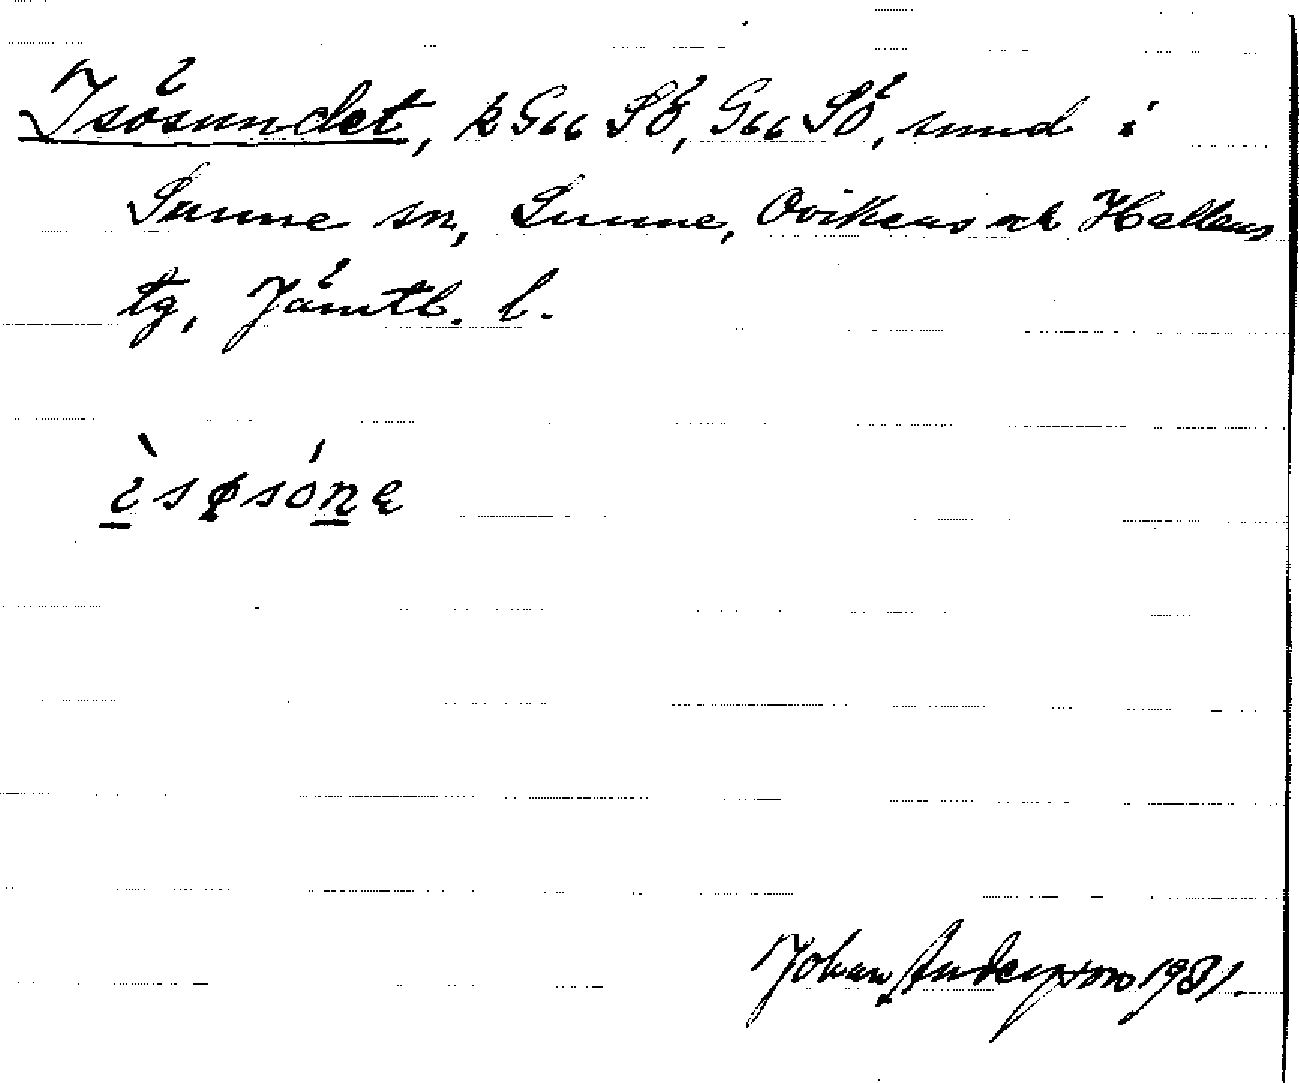 Isösundet, k G66 SÖ, G66 SÖ, sund i
Sunne sn, Sunne, Ovikens och Hallens
tg, Jämtl. l.
Johan Andersson 1931.